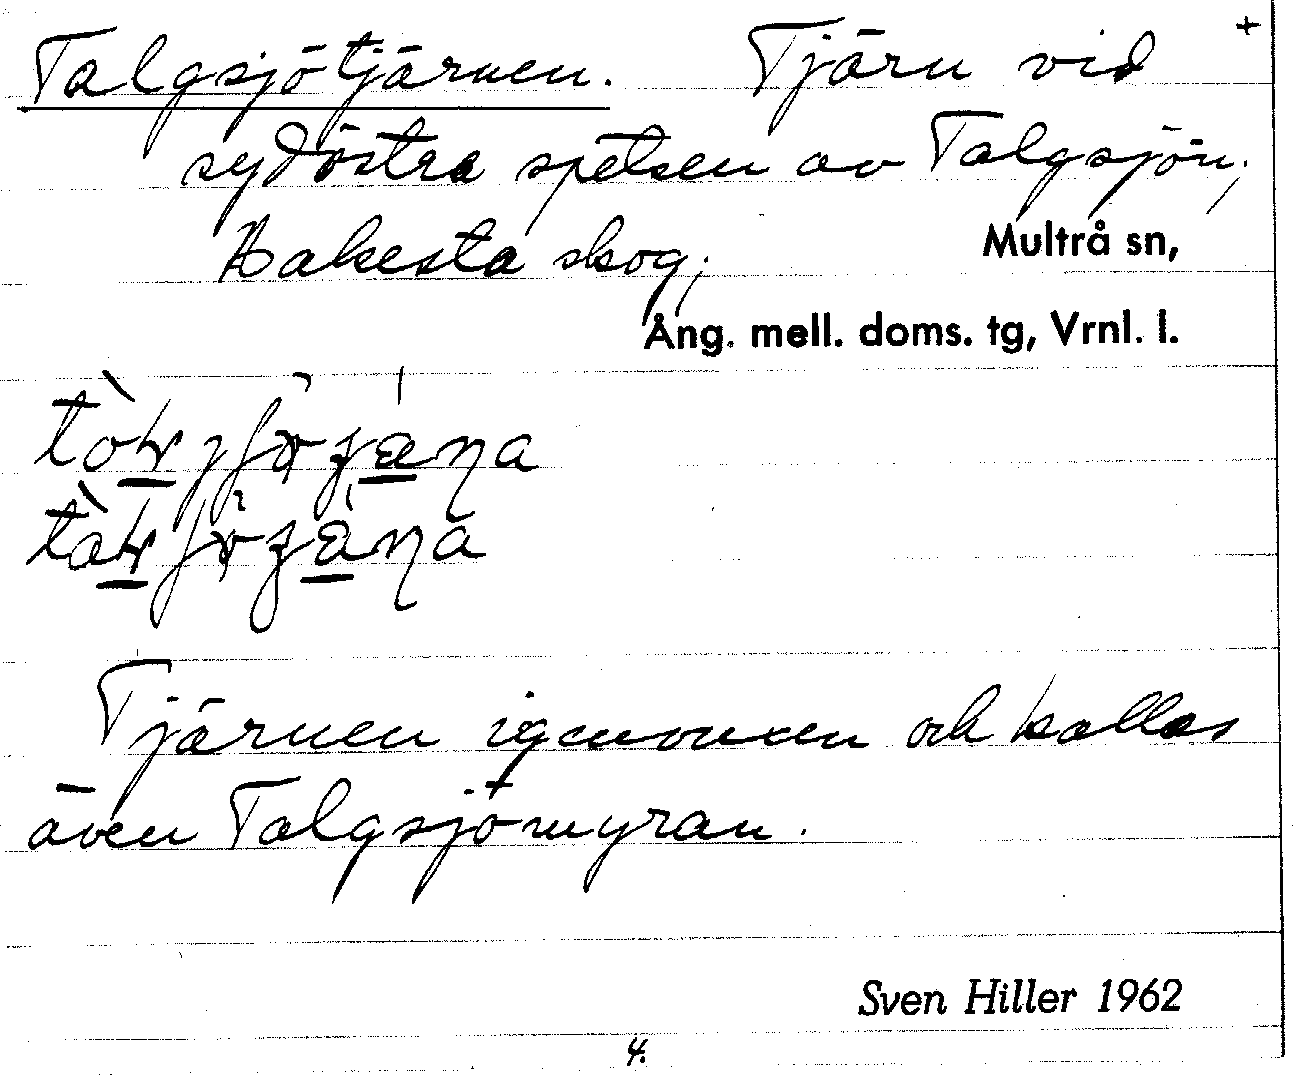 Talgsjötjärnen. Tjärn vid +
sydöstra spetsen av Talgsjön,
Hakesta skog, Multrå sn,
Ång. mell. doms. tg, Vrnl. l.
Tjärnen igenvuxen och kallas
även Talgsjömyran.
Sven Hiller 1962
4.